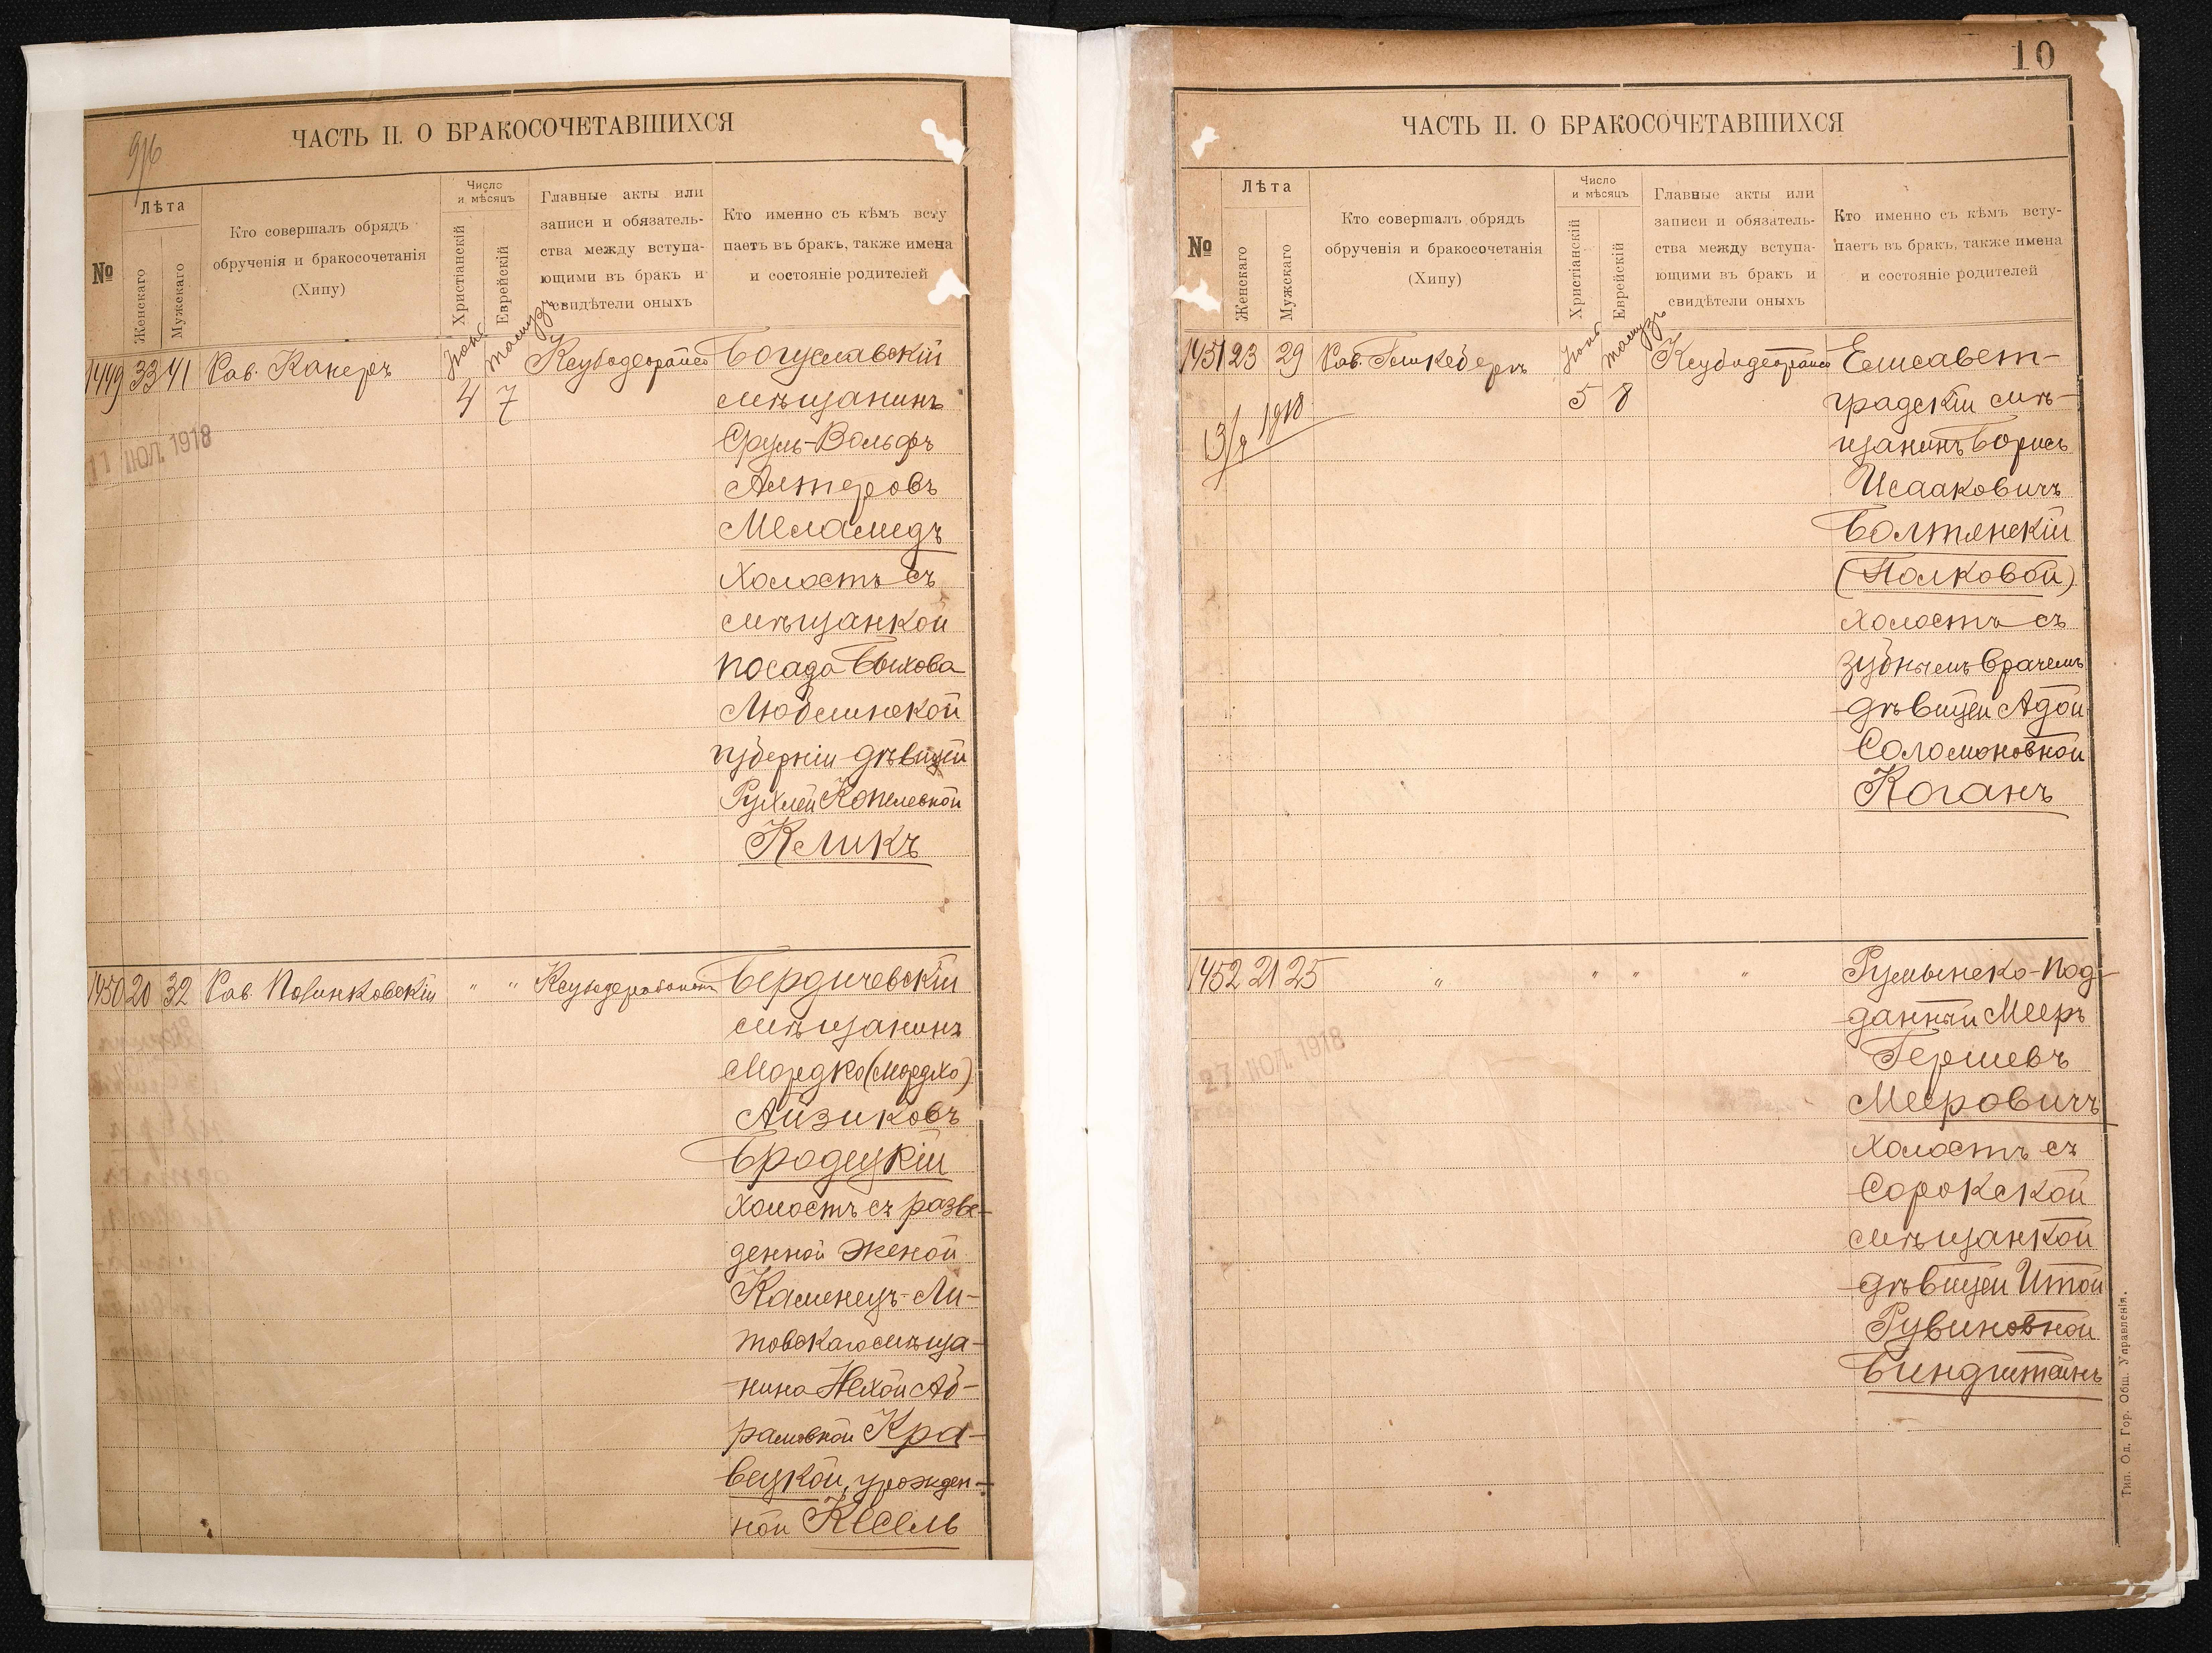 9/6
ЧАСТЬ II. О БРАКОСОЧЕТАВШИХСЯ
№
Лѣта
Женскаго
Мужскаго
Кто совершалъ обрядъ
обрученія и бракосочетанія
(Хипу)
Число
и мѣсяцъ
Христіанскій
Еврейскій
Главные акты или
записи и обязатель-
ства между вступа-
ющими въ бракъ и
свидѣтели оныхъ
Кто именно съ кѣмъ всту
паетъ въ бракъ, также имена
и состояніе родителей
1449 33 41 Рав. Канеръ
Тамузъ
4 7
11 ІЮЛ. 1918
Богуславскій
мѣщанинъ
Сруль-Вольфъ
Алтеровъ
Меламедъ
холостъ съ
мѣщанкой
посада Быхова
Люблинской
губерніи дѣвицей
Рухлей Копелевной
Кликъ
1450 20 32 Рав. " "
Бердичевскій
мѣщанинъ
Мордко (Мордхо)
Айзиковъ
Бродецкій
холостъ съ разве-
денной женой
Каменецъ-Ли-
товскаго мѣща-
нина Нехой Аб-
рамовной Кра-
вецкой, урожден-
ной Кесель
10
ЧАСТЬ II. О БРАКОСОЧЕТАВШИХСЯ
№
Лѣта
Женскаго
Мужскаго
Кто совершалъ обрядъ
обрученія и бракосочетанія
(Хипу)
Число
и мѣсяцъ
Христіанскій
Еврейскій
Главные акты или
записи и обязатель-
ства между вступа-
ющими въ бракъ и
свидѣтели оныхъ
Кто именно съ кѣмъ всту-
паетъ въ бракъ, также имена
и состояніе родителей
1451 23 29 Рав.
Тамузъ
5 8
1918
Елисавет-
градскій мѣ-
щанинъ Борисъ
Исааковичъ
Болтянскій
(Полковой)
холостъ съ
зубнымъ врачемъ
дѣвицей Адой
Соломоновной
Коганъ
1452 21 25 " " " "
27 ІЮЛ. 1918
Румынско-под-
данный Мееръ
Гершевъ
Мееровичъ
холостъ съ
Сорокской
мѣщанкой
дѣвицей Итой
Рувиновной
Биндштейнъ
Тип. Од. Гор. Общ. Управленія.